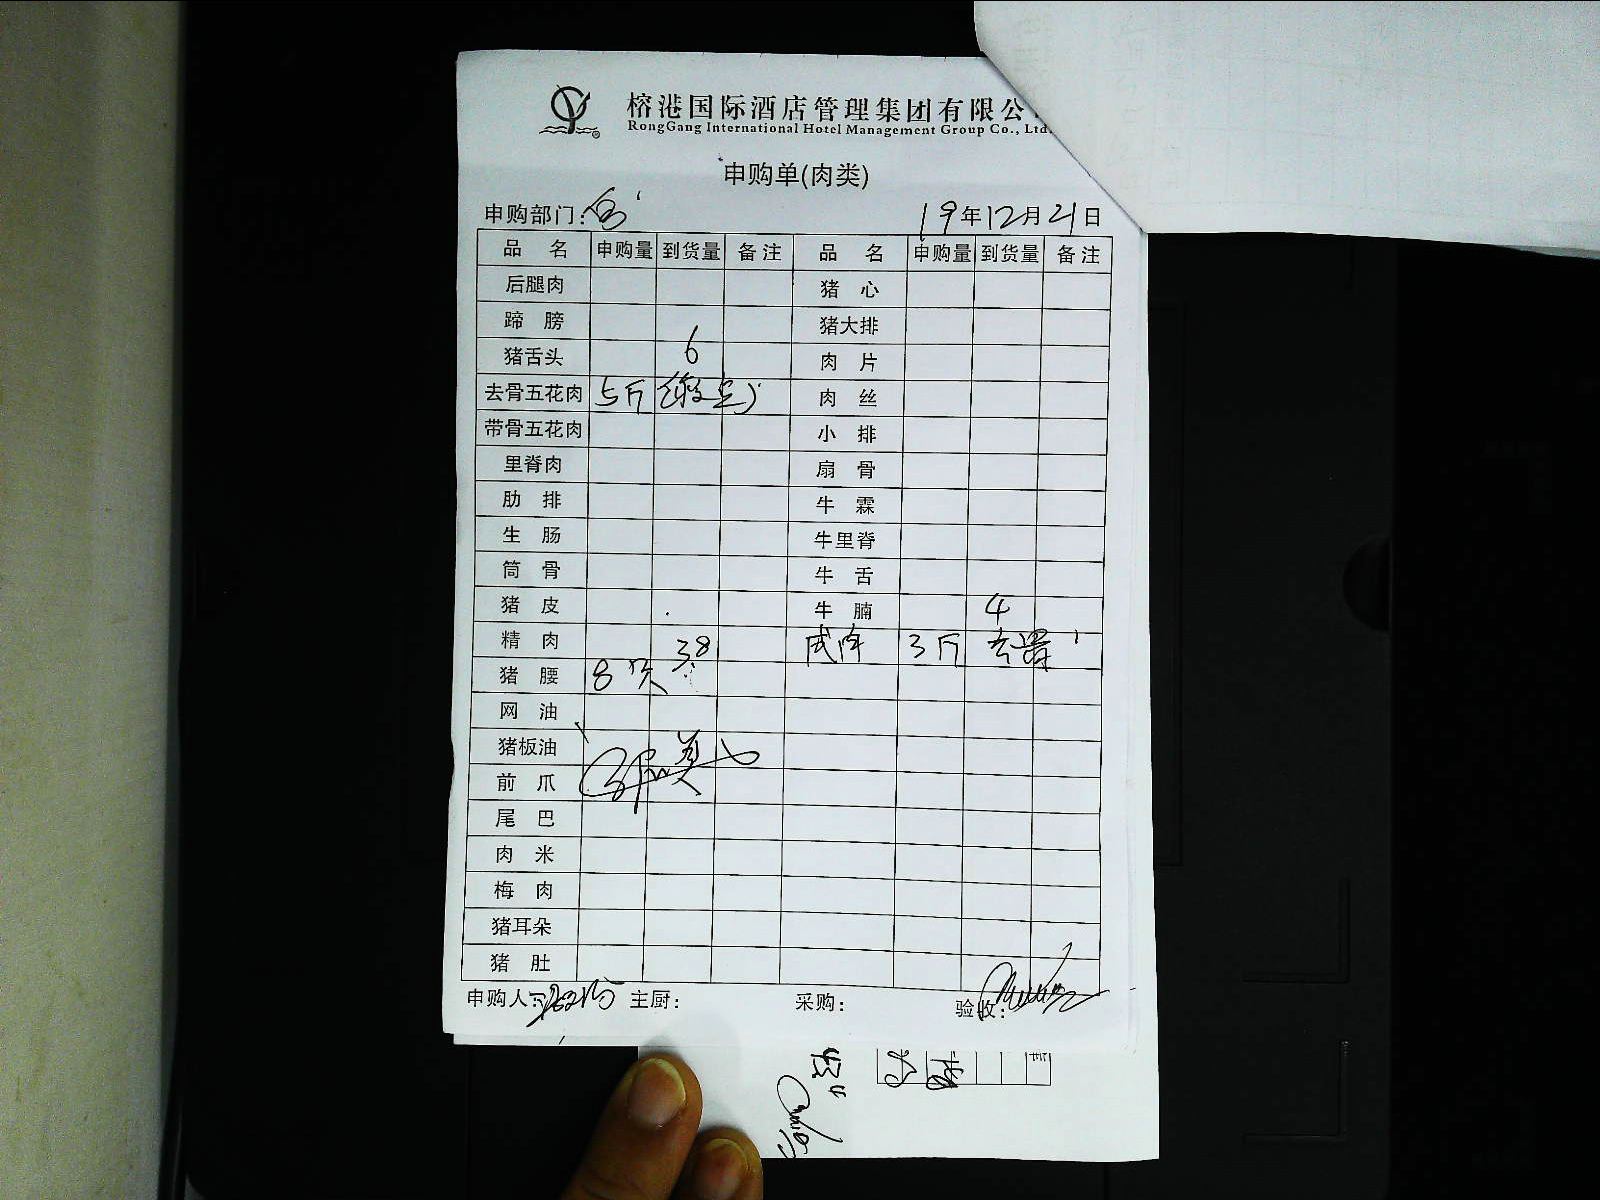 榕港国际酒店管理集团有限公
RongGang International Hotel Management Group Co., Ltd.
申购单(肉类)
申购部门: 19年12月21日
品 名 申购量 到货量 备注 品 名 申购量 到货量 备注
后腿肉 猪 心
蹄 膀 猪大排
猪舌头 6 肉 片
去骨五花肉 5斤 肉 丝
带骨五花肉 小 排
里脊肉 扇 骨
肋 排 牛 霖
生 肠 牛里脊
筒 骨 牛 舌
猪 皮 牛 腩 4
精 肉 38 3斤
猪 腰 8
网 油
猪板油
前 爪
尾 巴
肉 米
梅 肉
猪耳朵
猪 肚
申购人: 主厨: 采购: 验收: